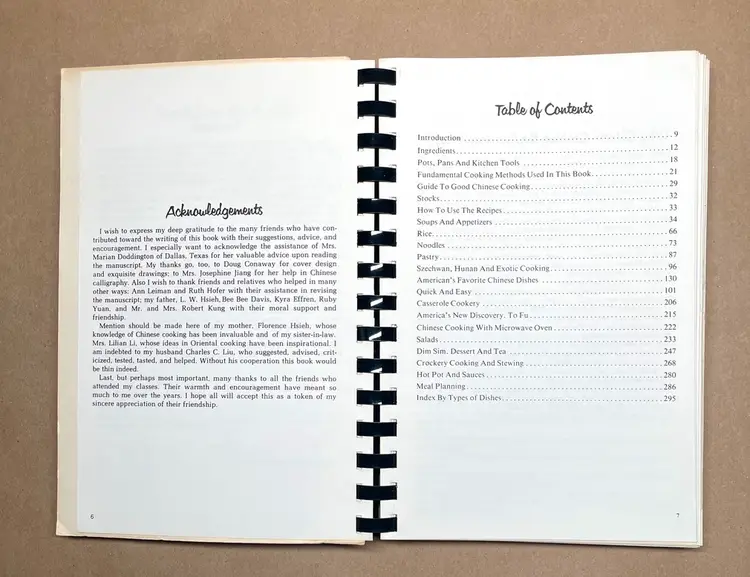 Acknowledgements
I wish to express my deep gratitude to the many friends who have con-
tributed toward the writing of this book with their suggestions, advice, and
encouragement. I especially want to acknowledge the assistance of Mrs.
Marian Doddington of Dallas, Texas for her valuable advice upon reading
the manuscript. My thanks go, too, to Doug Conaway for cover design
and exquisite drawings; to Mrs. Josephine Jiang for her help in Chinese
calligraphy. Also I wish to thank friends and relatives who helped in many
other ways: Ann Leiman and Ruth Hofer with their assistance in revising
the manuscript; my father, L. W. Hsieh, Bee Bee Davis, Kyra Effren, Ruby
Yuan, and Mr. and Mrs. Robert Kung with their moral support and
friendship.
Mention should be made here of my mother, Florence Hsieh, whose
knowledge of Chinese cooking has been invaluable and of my sister-in-law.
Mrs. Lilian Li, whose ideas in Oriental cooking have been inspirational. I
am indebted to my husband Charles C. Liu, who suggested, advised, crit-
icized, tested, tasted, and helped. Without his cooperation this book would
be thin indeed.
Last, but perhaps most important, many thanks to all the friends who
attended my classes. Their warmth and encouragement have meant so
much to me over the years. I hope all will accept this as a token of my
sincere appreciation of their friendship.
6
Table of Contents
Introduction 9
Ingredients 12
Pots, Pans And Kitchen Tools 18
Fundamental Cooking Methods Used In This Book 21
Guide To Good Chinese Cooking 29
Stocks 32
How To Use The Recipes 33
Soups And Appetizers 34
Rice 66
Noodles 73
Pastry 87
Szechwan, Hunan And Exotic Cooking 96
American's Favorite Chinese Dishes 130
Quick And Easy 101
Casserole Cookery 206
America's New Discovery. To Fu 215
Chinese Cooking With Microwave Oven 222
Salads 233
Dim Sim. Dessert And Tea 247
Crockery Cooking And Stewing 268
Hot Pot And Sauces 280
Meal Planning 286
Index By Types of Dishes 295
7